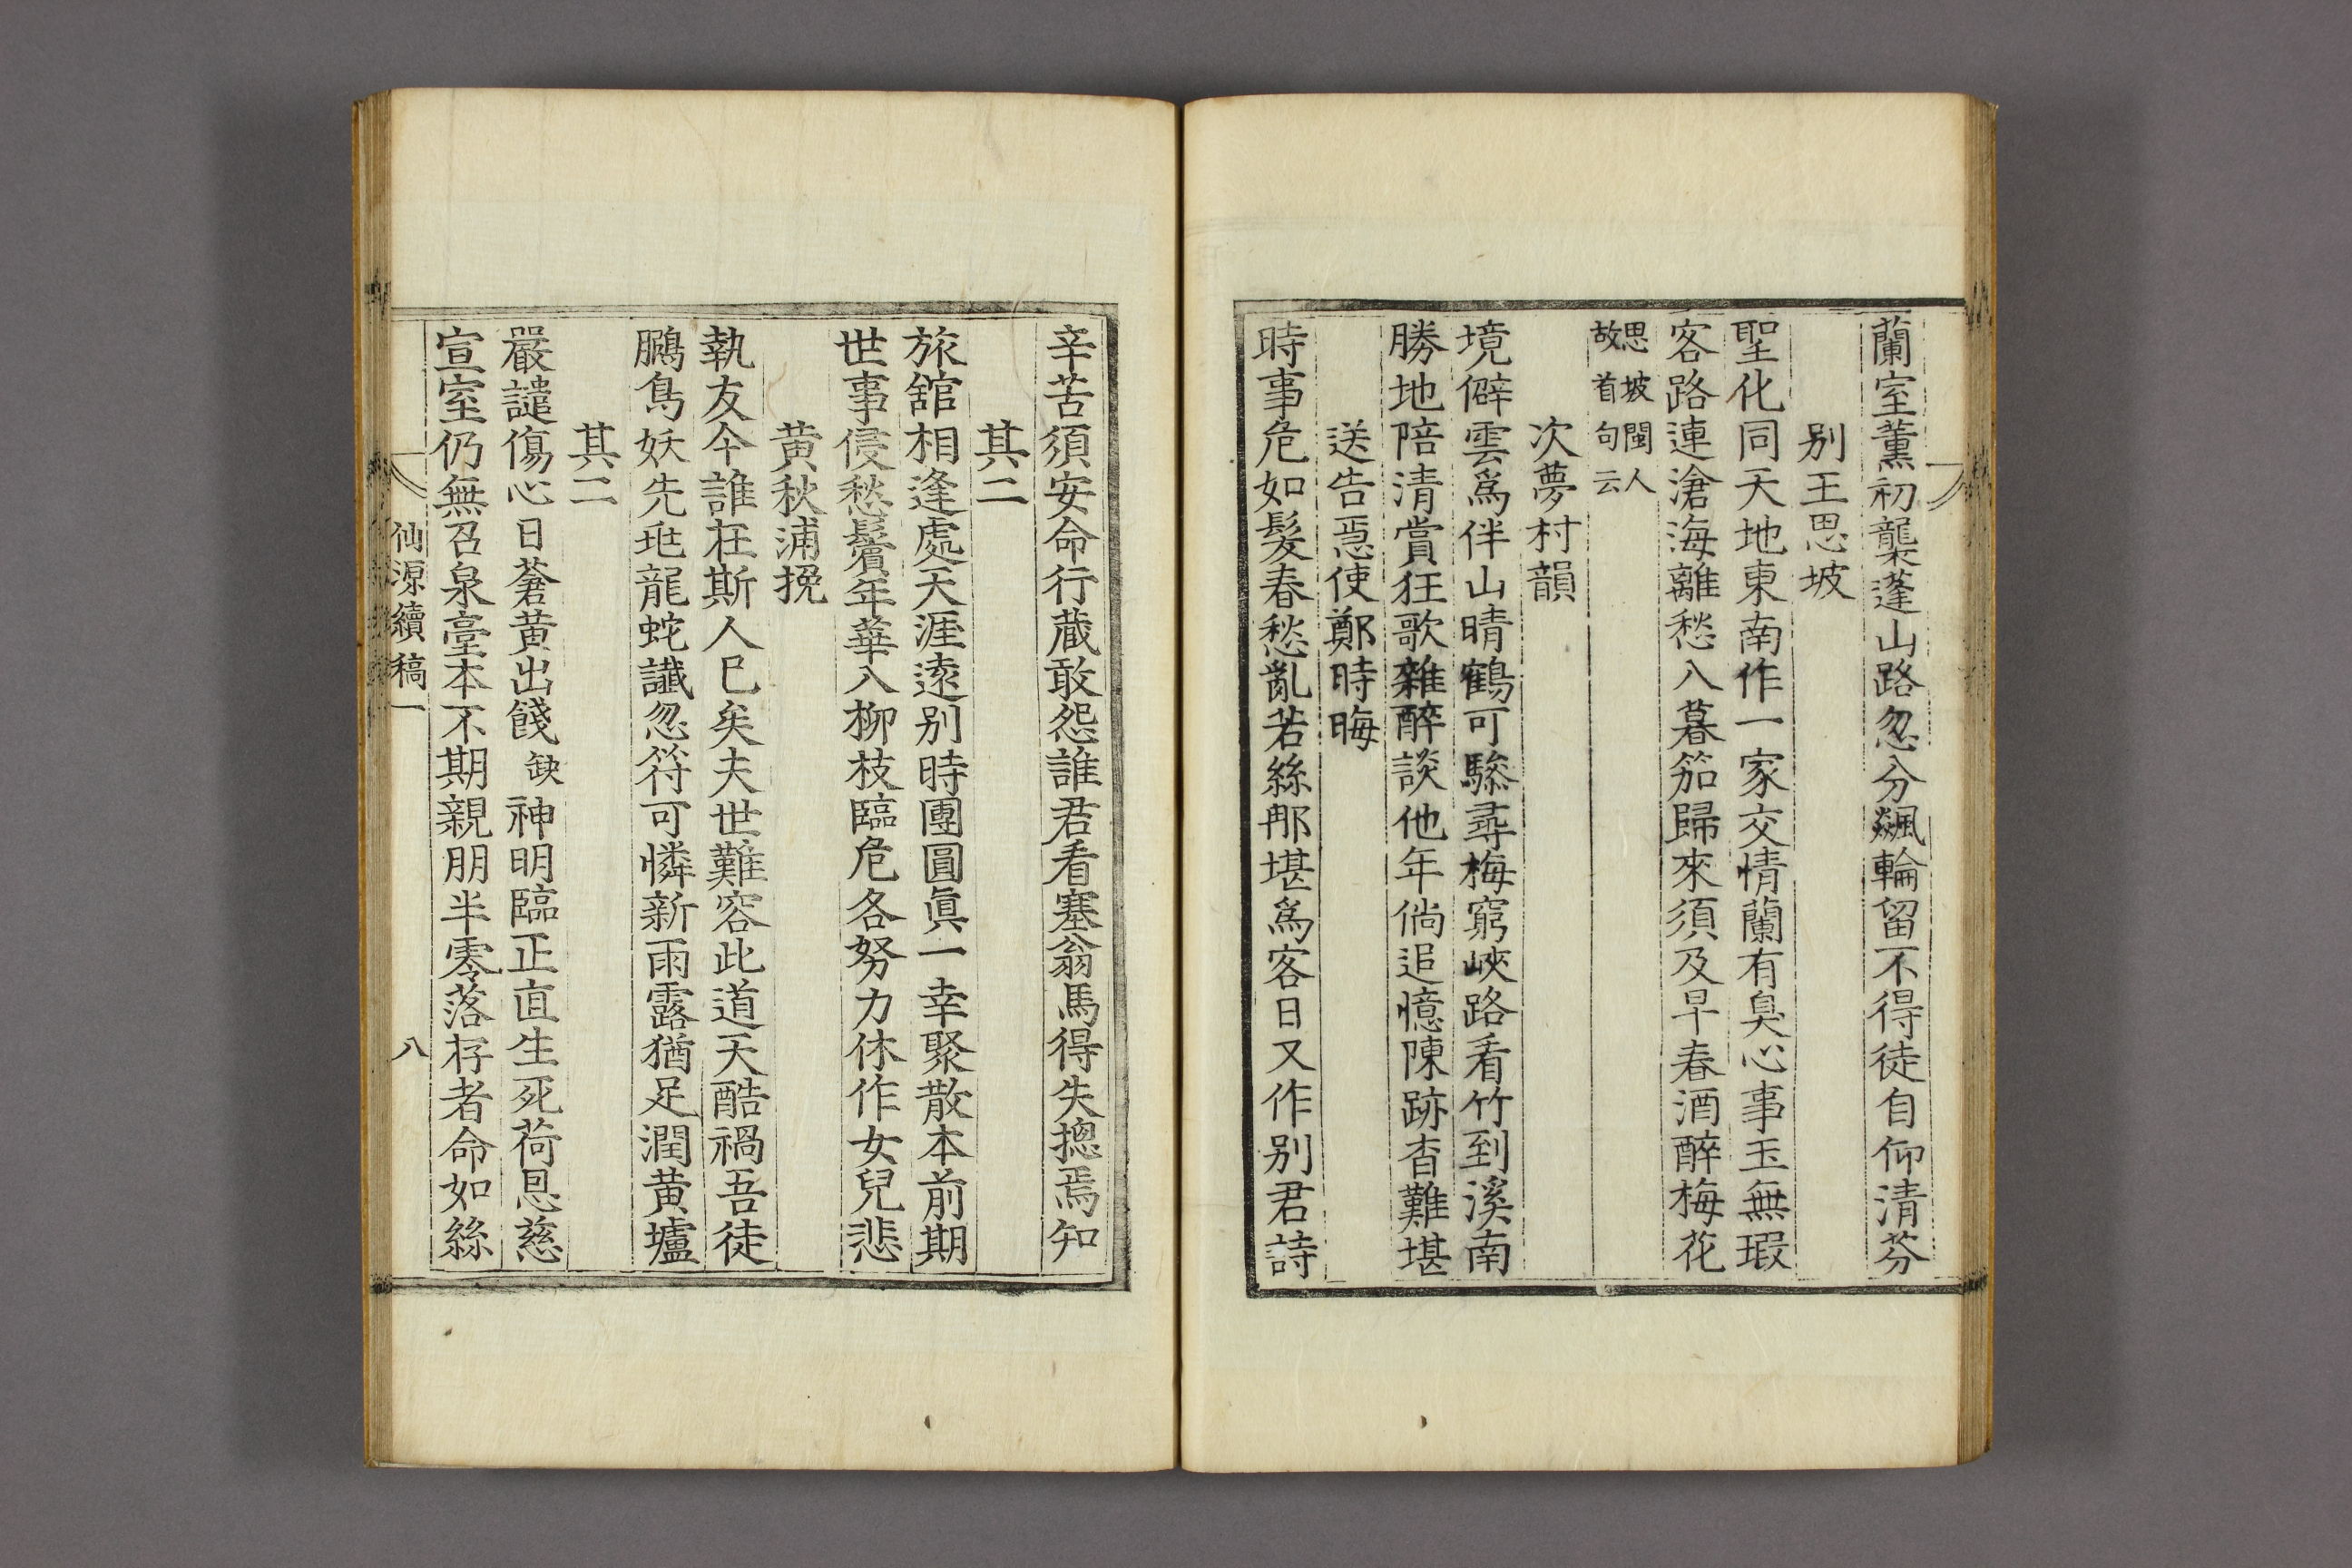 蘭室薰初襲蓬山路忽分飆輪留不得徒自仰清芬
別王思坡
聖化同天地東南作一家交情蘭有臭心事玉無瑕
客路連滄海離愁入暮笳歸來須及早春酒醉梅花
思坡閩人
故首句云
次夢村韻
境僻雲爲伴山晴鶴可驂尋梅窮峽路看竹到溪南
勝地陪清賞狂歌雜醉談他年倘追憶陳跡杳難堪
送告急使鄭時晦
時事危如髮春愁亂若絲那堪爲客日又作別君詩
辛苦須安命行藏敢怨誰君看塞翁馬得失摠焉知
其二
旅舘相逢處天涯遠別時團圓眞一幸聚散本前期
世事侵愁鬢年華入柳枝臨危各努力休作女兒悲
黃秋浦挽
執友今誰在斯人已矣夫世難容此道天酷禍吾徒
鵩鳥妖先兆龍蛇讖忽符可憐新雨露猶足潤黃壚
其二
嚴譴傷心日蒼黃出餞缺神明臨正直生死荷恩慈
宣室仍無召泉臺本不期親朋半零落存者命如絲
仙源續稿一
八